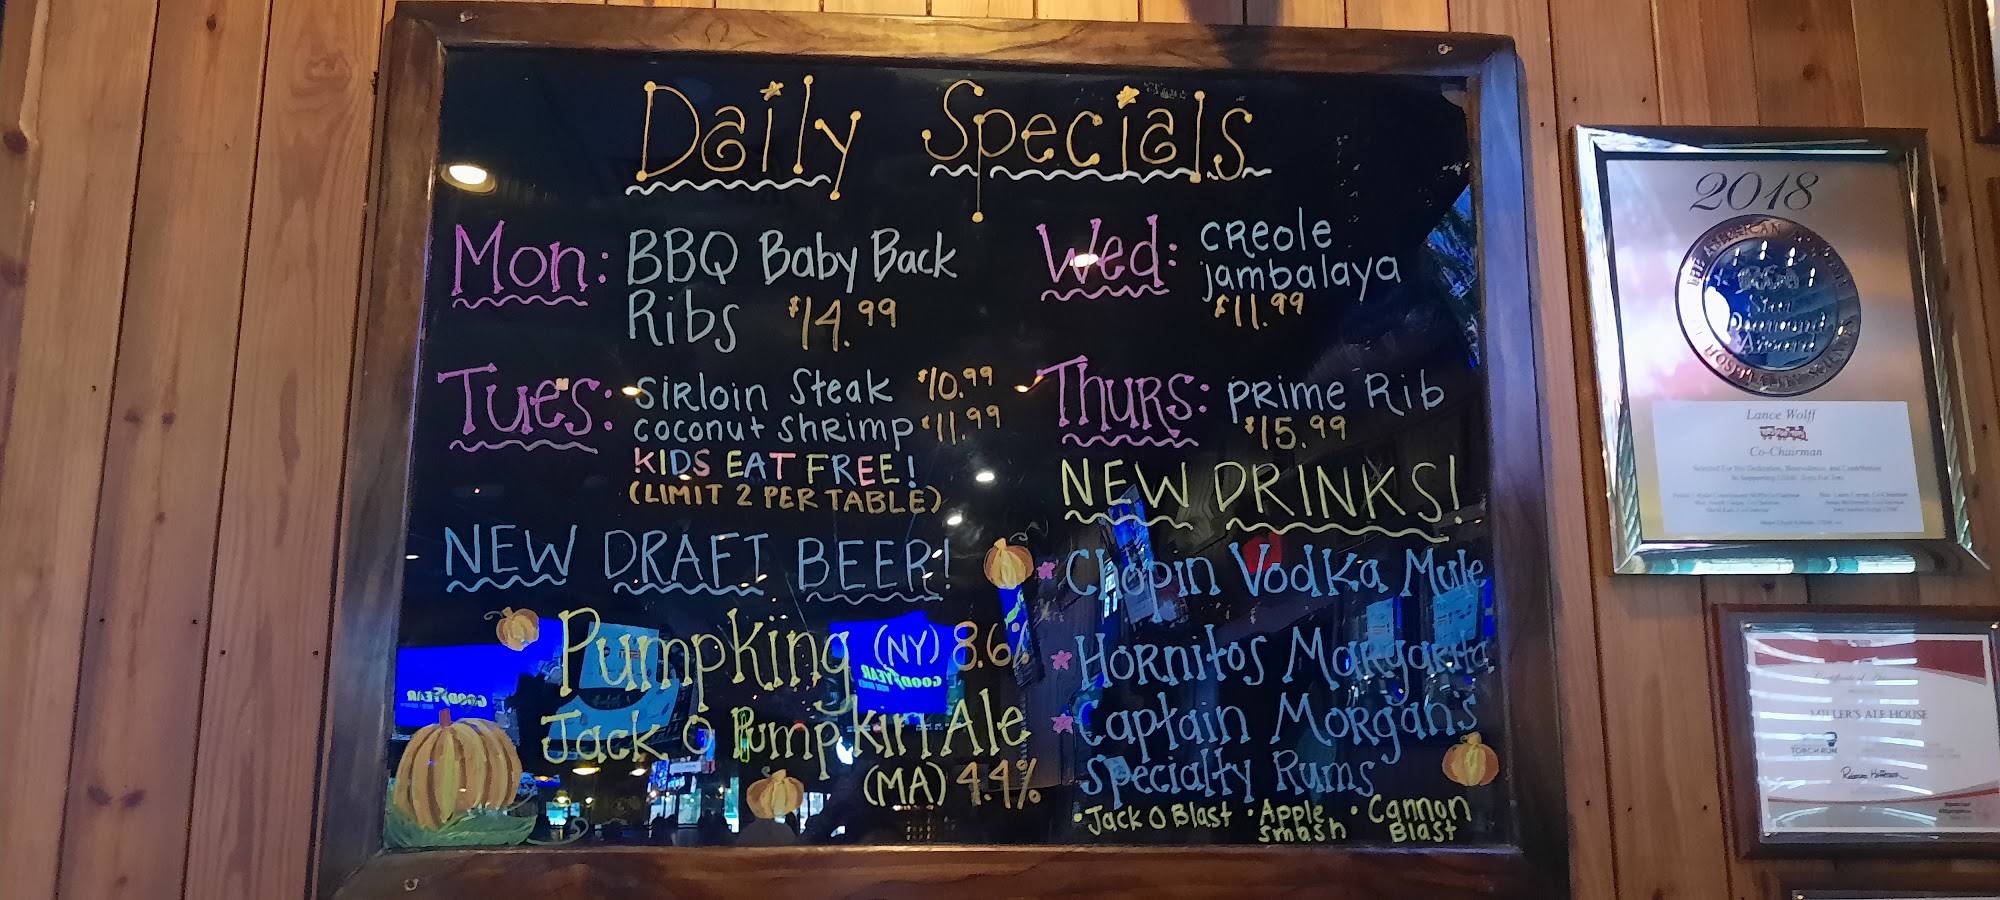 Daily Specials
Mon: BBQ Baby Back
Ribs $14.99
Tues: Sirloin Steak $10.99
coconut shrimp $11.99
KIDS EAT FREE!
(LIMIT 2 PER TABLE)
Wed: creole
jambalaya
$11.99
Thurs: Prime Rib
$15.99
NEW DRAFT BEER!
Pumpking (NY) 8.6%
Jack O Pumpkin Ale
(MA) 4.4%
NEW DRINKS!
Chopin Vodka Mule
Hornitos Margarita
Captain Morgans
Specialty Rums
• Jack O Blast • Apple Smash • Cannon Blast
GOODYEAR
GOODYEAR
2018
THE AMERICAN
Star
Diamond
Award
HOSPITALITY SCIENCES
Lance Wolff
Co-Chairman
Selected For His Dedication, Benevolence, and Contribution
MILLER'S ALE HOUSE
TORCH RUN